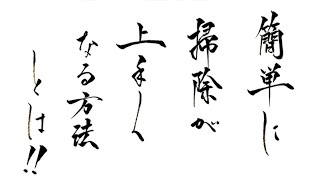 簡単に
掃除が
上手く
なる方法
とは!!